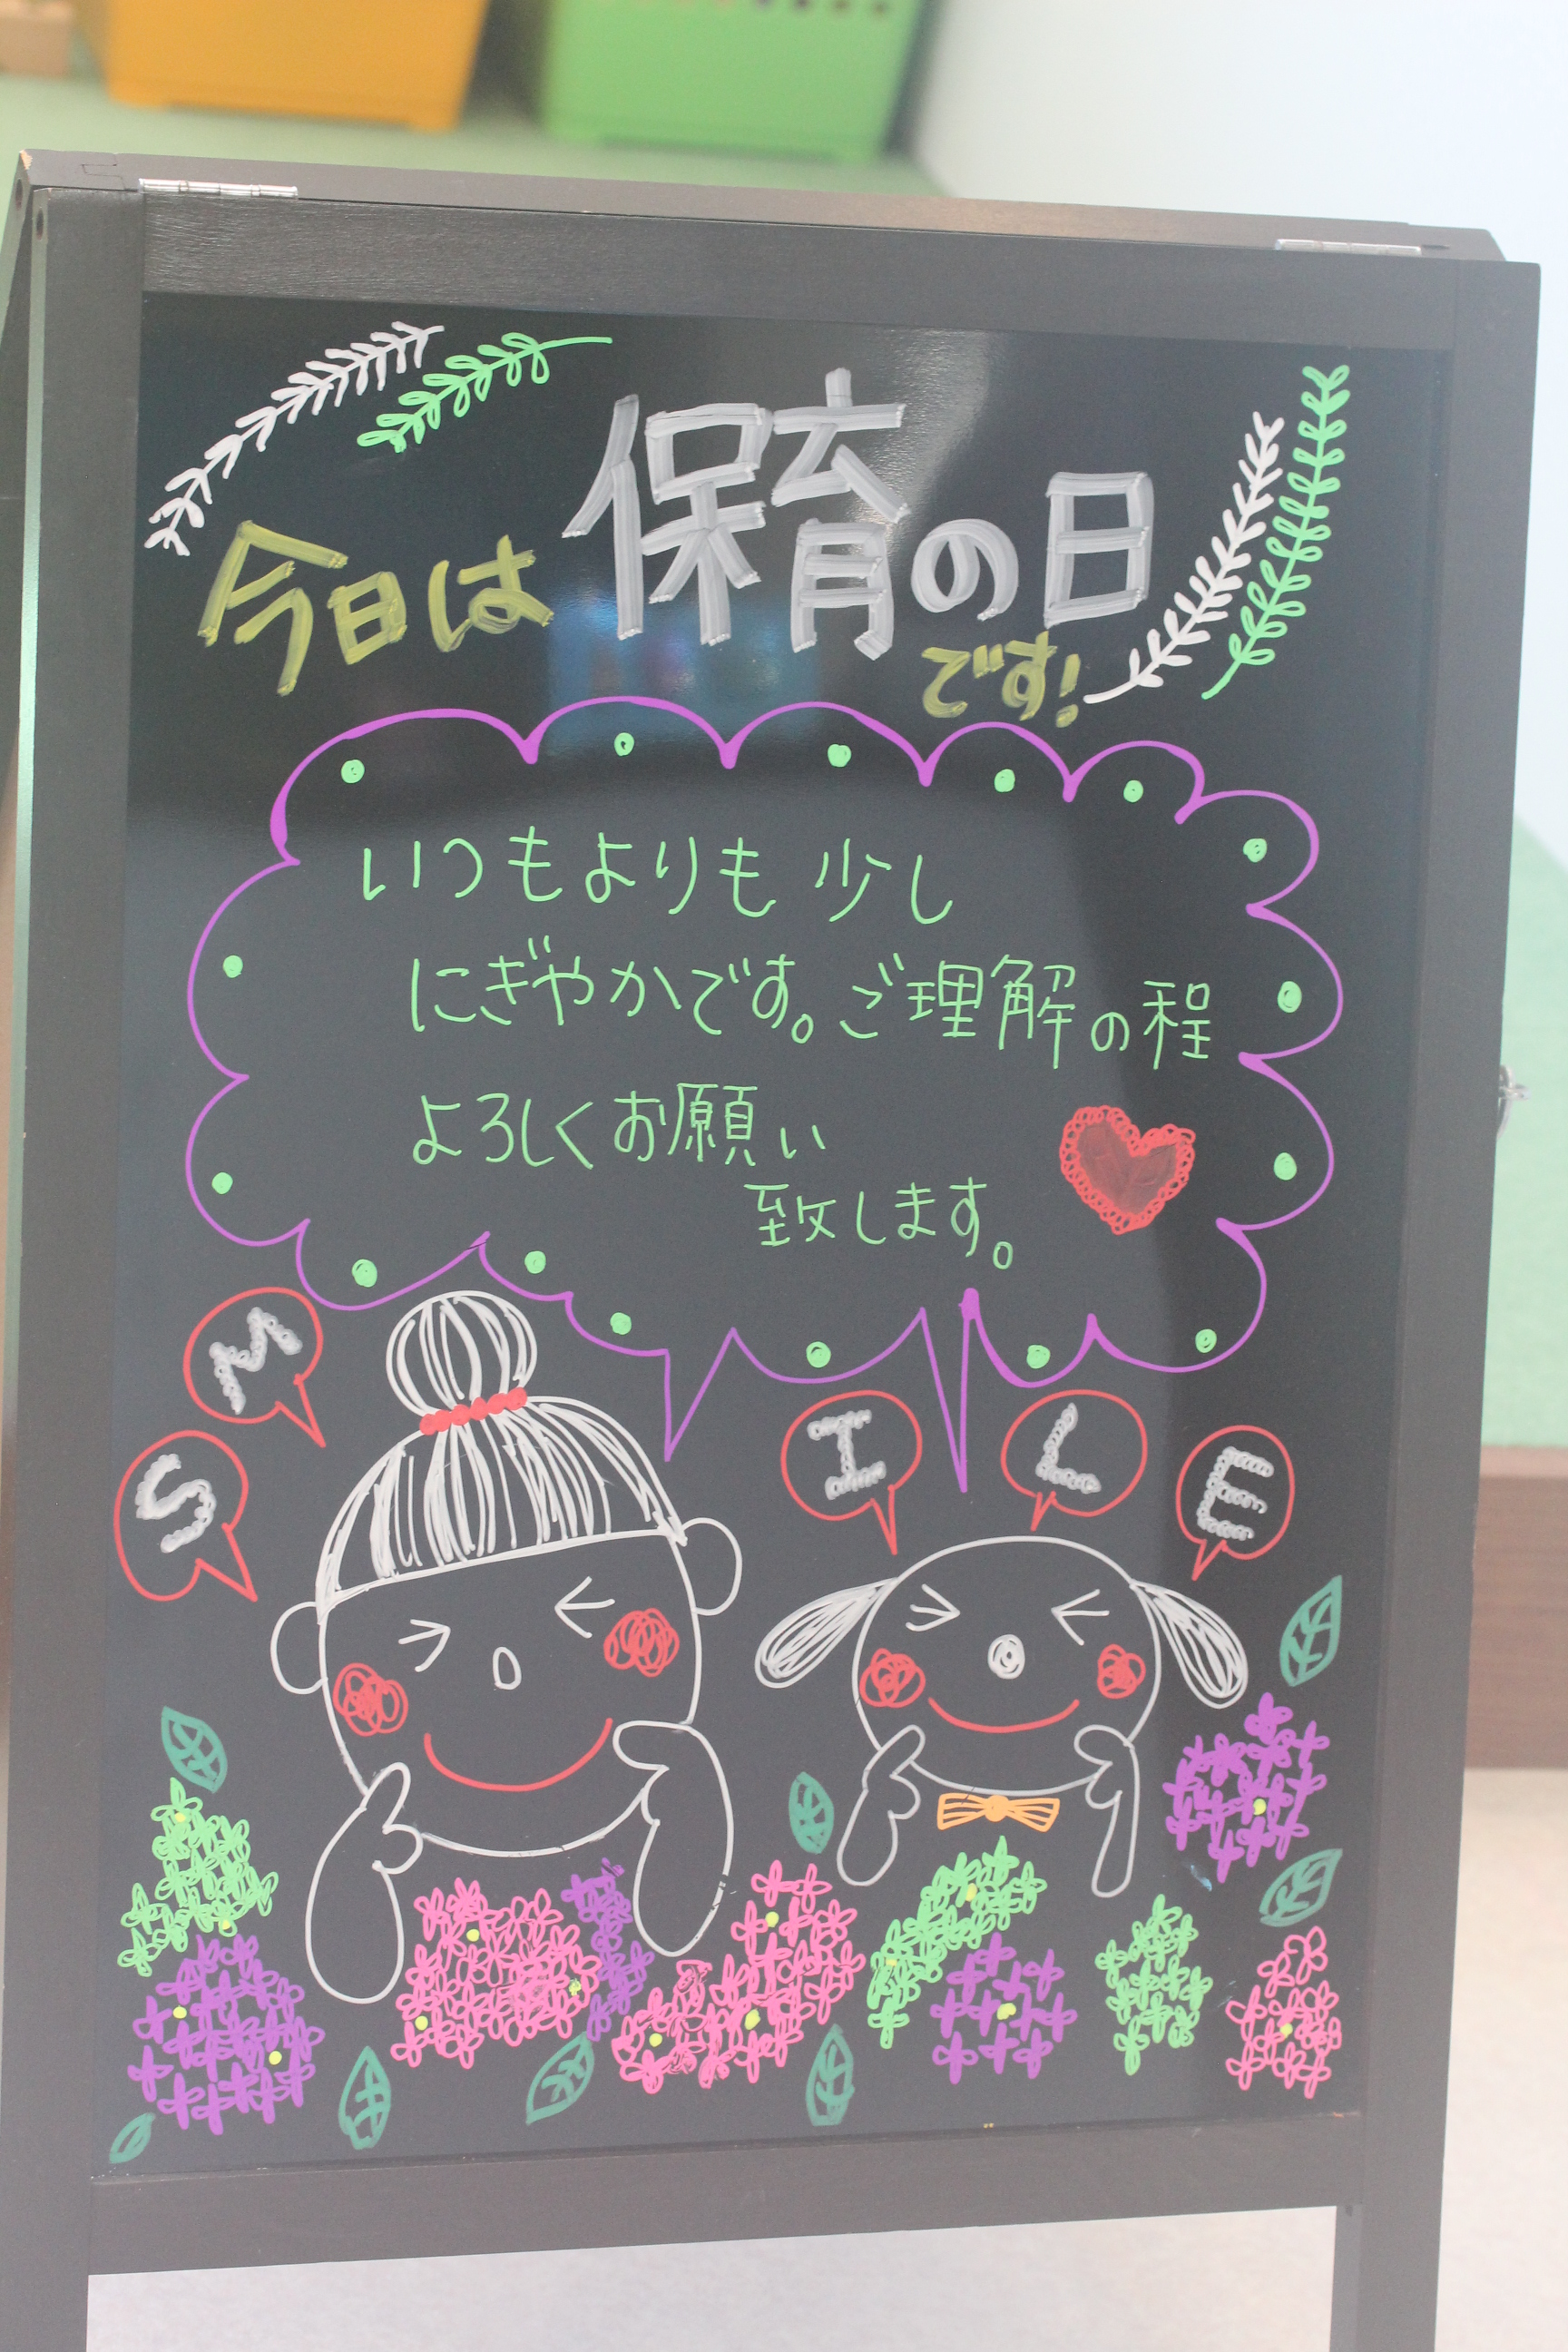 今日は保育の日
です!
いつもよりも少し
にぎやかです。ご理解の程
よろしくお願い
致します。
SMILE